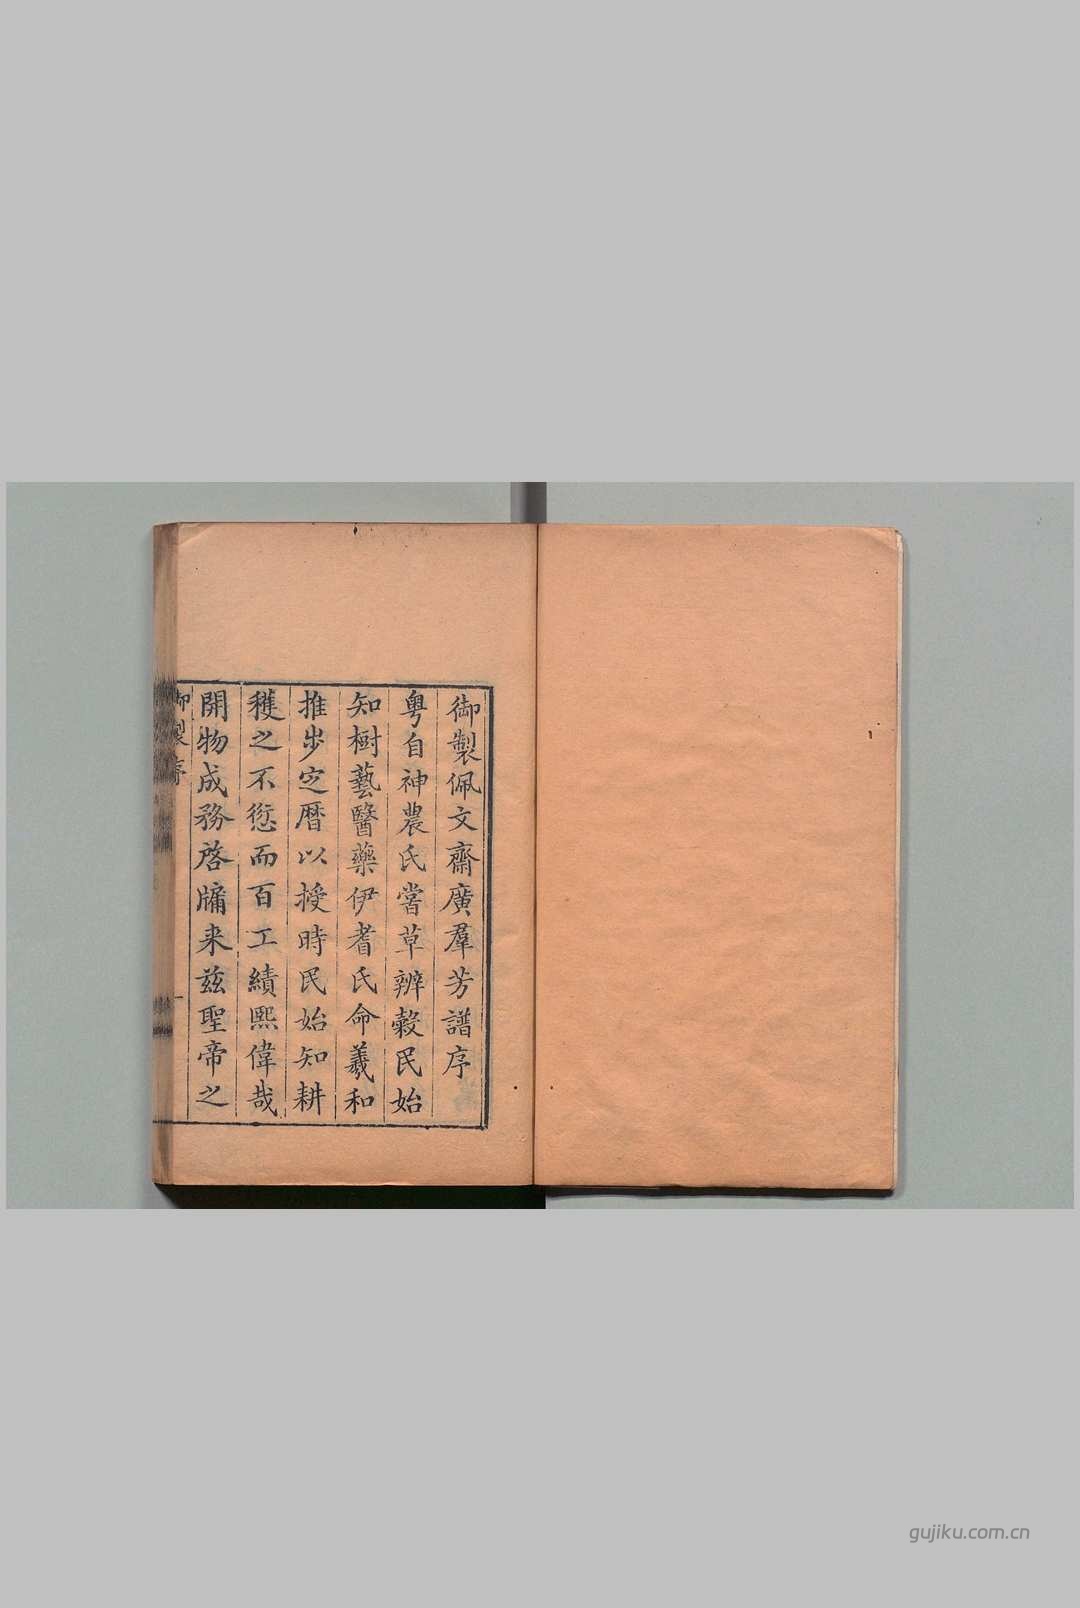 御製佩文齋廣羣芳譜序
粵自神農氏嘗草辨穀民始
知樹藝醫藥伊耆氏命羲和
推步定曆以授時民始知耕
穫之不愆而百工績熙偉哉
開物成務啓牖来茲聖帝之
御製序
一
gujiku.com.cn